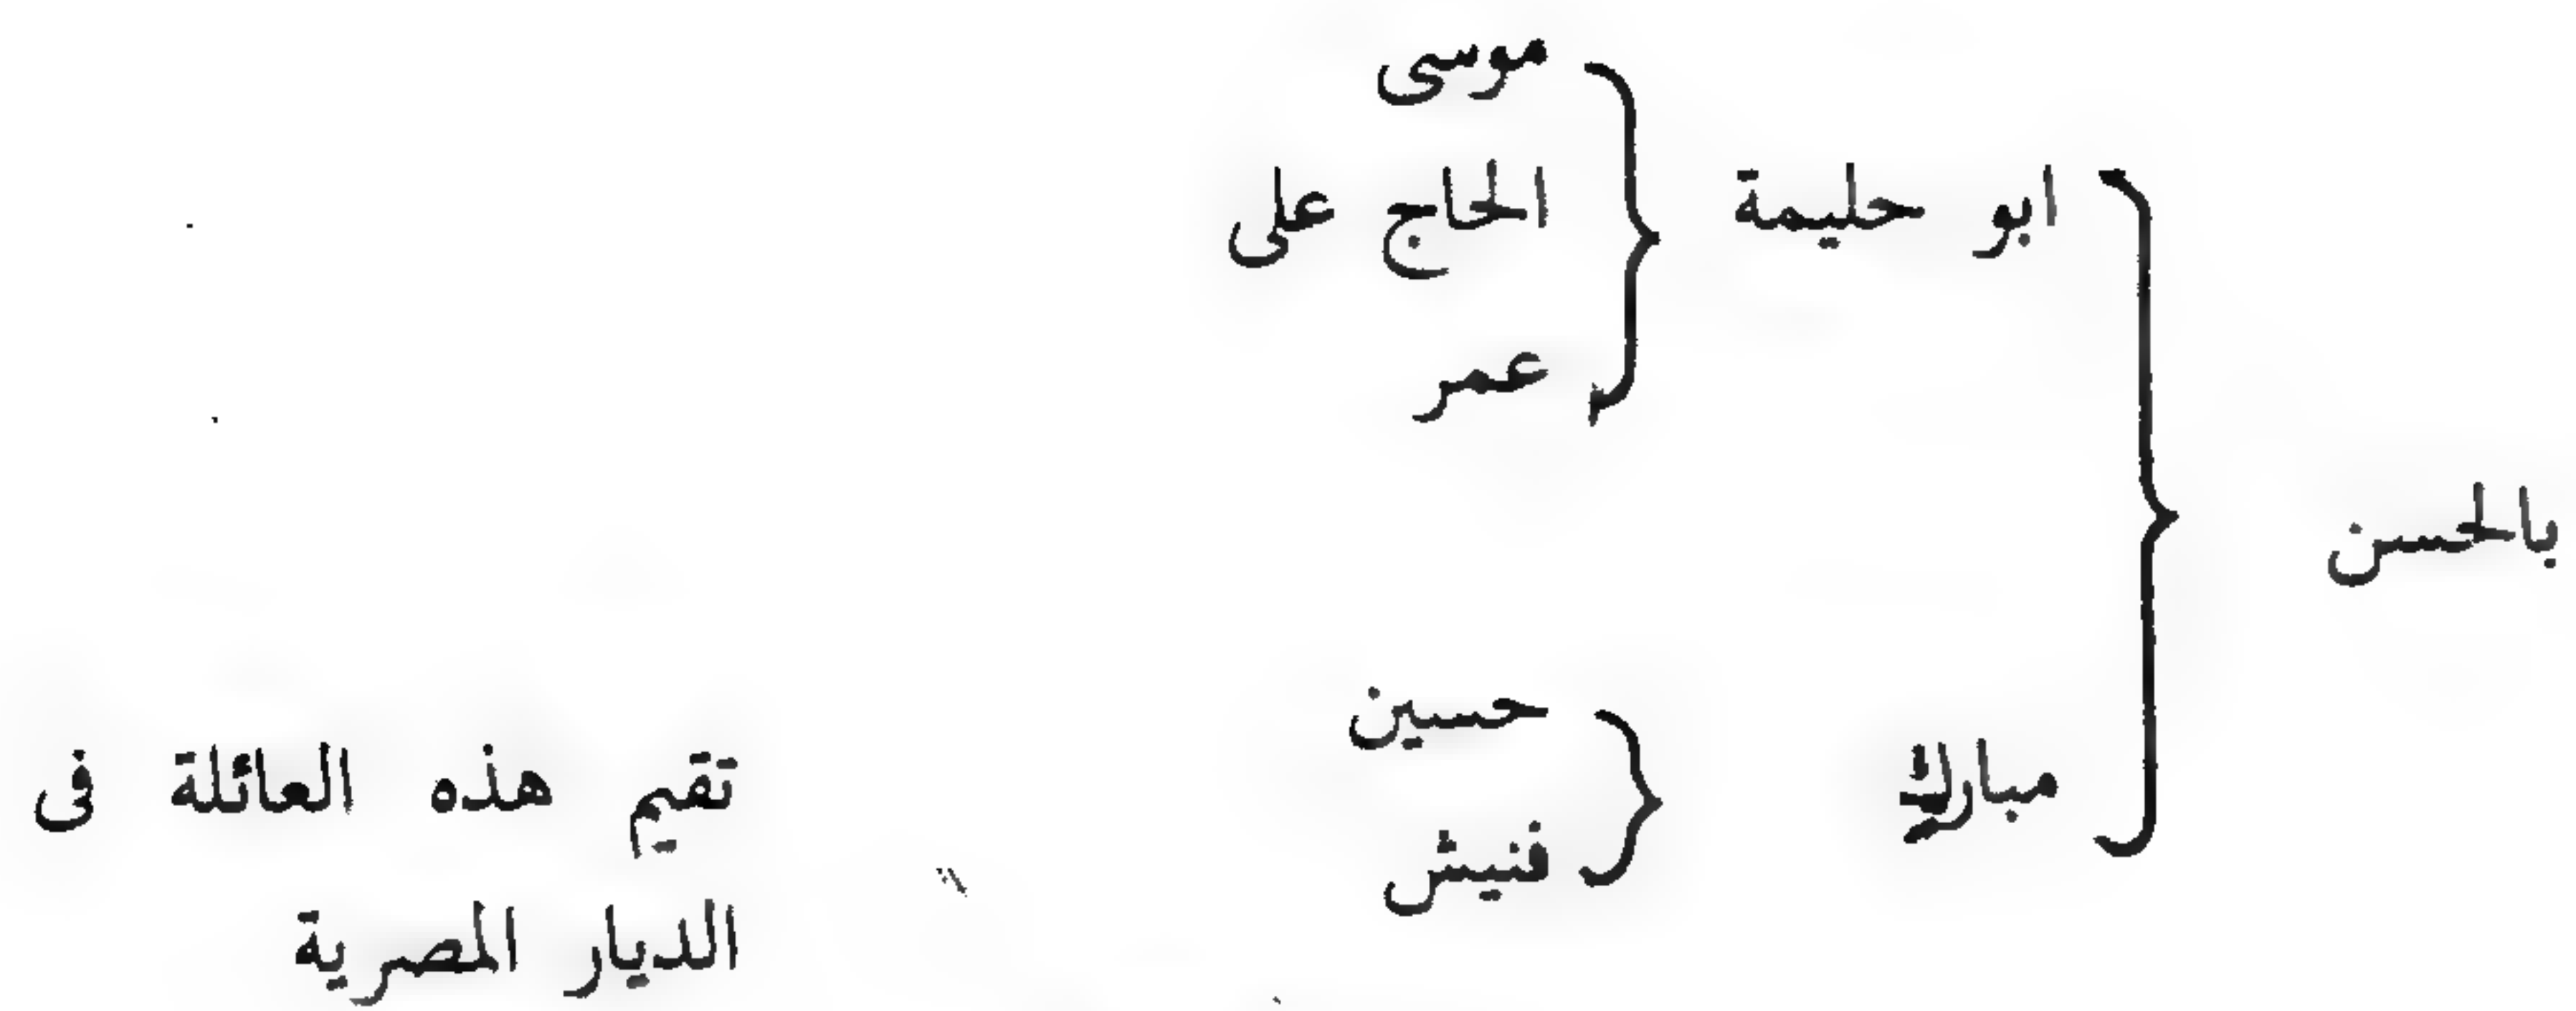 بالحسن
ابو حليمة
موسى
الحاج على
عمر
مبارك
حسين
فنيش
تقيم هذه العائلة فى
الديار المصرية